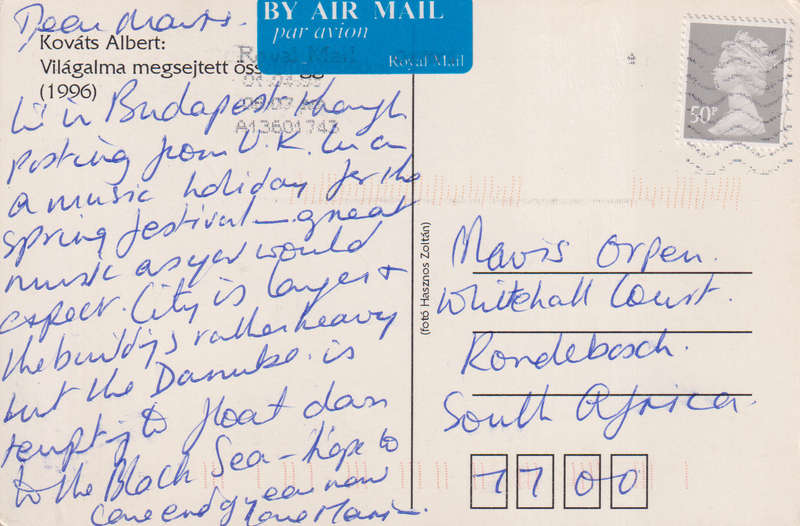 BY AIR MAIL
par avion
Royal Mail
Dear Mavis.
Kováts Albert:
Világalma megsejtett
(1996)
Royal Mail
A13601743
50P
in Budapest though
posting from U.K. I'm on
a music holiday for the
Spring festival — great
music as you would
expect. City is larger &
the buildings rather heavy
but the Danube is
tempting to float down
to the Black Sea — hope to
come end of year now
love Mari
(fotó Hasznos Zoltán)
Mavis Orpen.
Whitehall Court.
Rondebosch.
South Africa.
7700